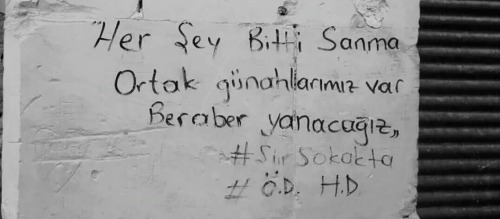 "Her Şey Bitti Sanma
Ortak günahlarımız var
Beraber yanacağız„
#Şiirsokakta
# Ö.D. H.D